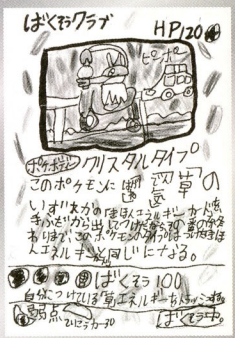 ばくそうクラブ HP120
ピーポ
ポケボディー クリスタルタイプ
このポケモンに「草」の
いずれかの きほんエネルギーカードを
手ふだから出してつけたなら、その番が
おわるまで、このポケモンのタイプは、つけたきほ
んエネルギーと同じになる。
ばくそう 100
自分についている 草エネルギーを1まいトラッシュする。
弱点 ていこう力-30 ばくそう中。